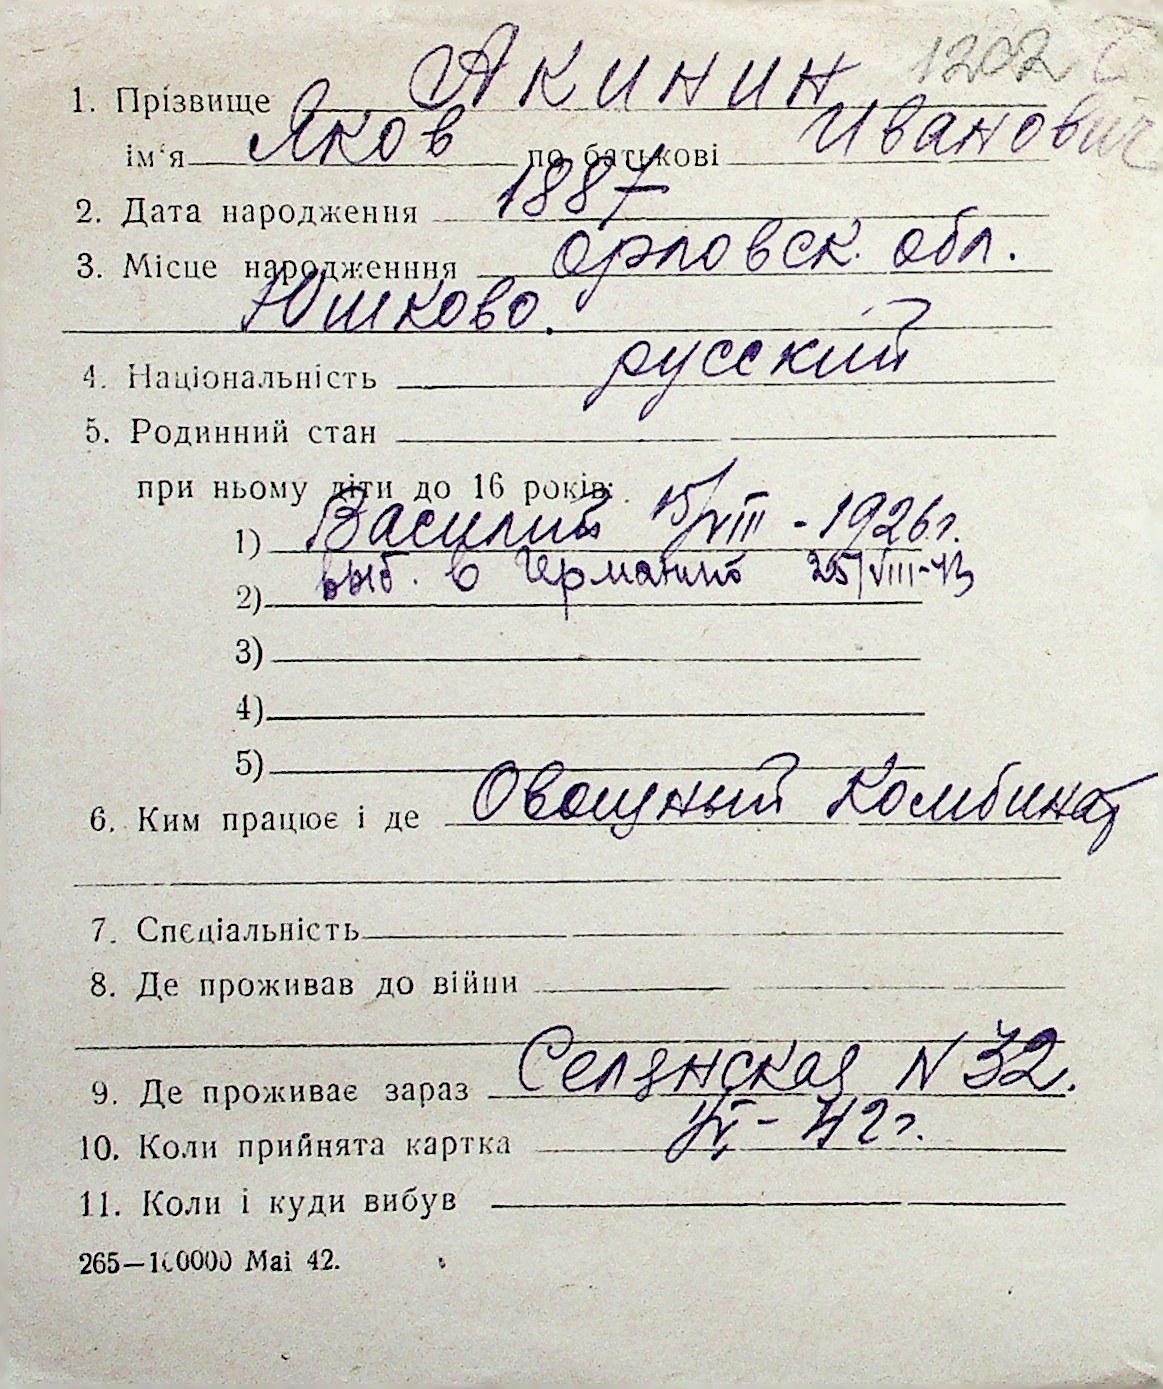 1202
1. Прізвище Акинин
ім‘я Яков по батькові Иванович
2. Дата народження 1887
3. Місце народженння Орловск. обл.
Юшково.
4. Національність русский
5. Родинний стан
при ньому діти до 16 років:
1) Василий 15/VIII - 1926 г.
2) выб. в Германию 25/VIII-43
3)
4)
5)
6. Ким працює і де Овощный Комбинат
7. Спеціальність
8. Де проживав до війни
9. Де проживає зараз Селянская N 32.
10. Коли прийнята картка - 42 г.
11. Коли і куди вибув
265—100000 Маі 42.